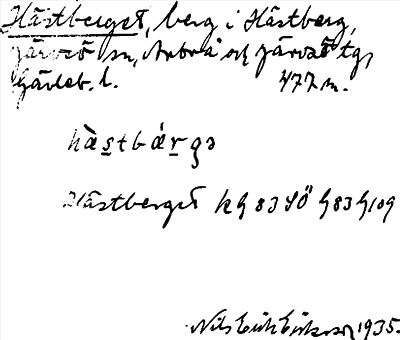 Hästberget, berg i Hästberg,
Järvsö sn, Arbrå och Järvsö tg,
Gävleb. l. 477 m.
hàs̲tbár̲gə
Hästberget kg 83 SÖ G83 G109
Nils Erik Eriksson 1935.